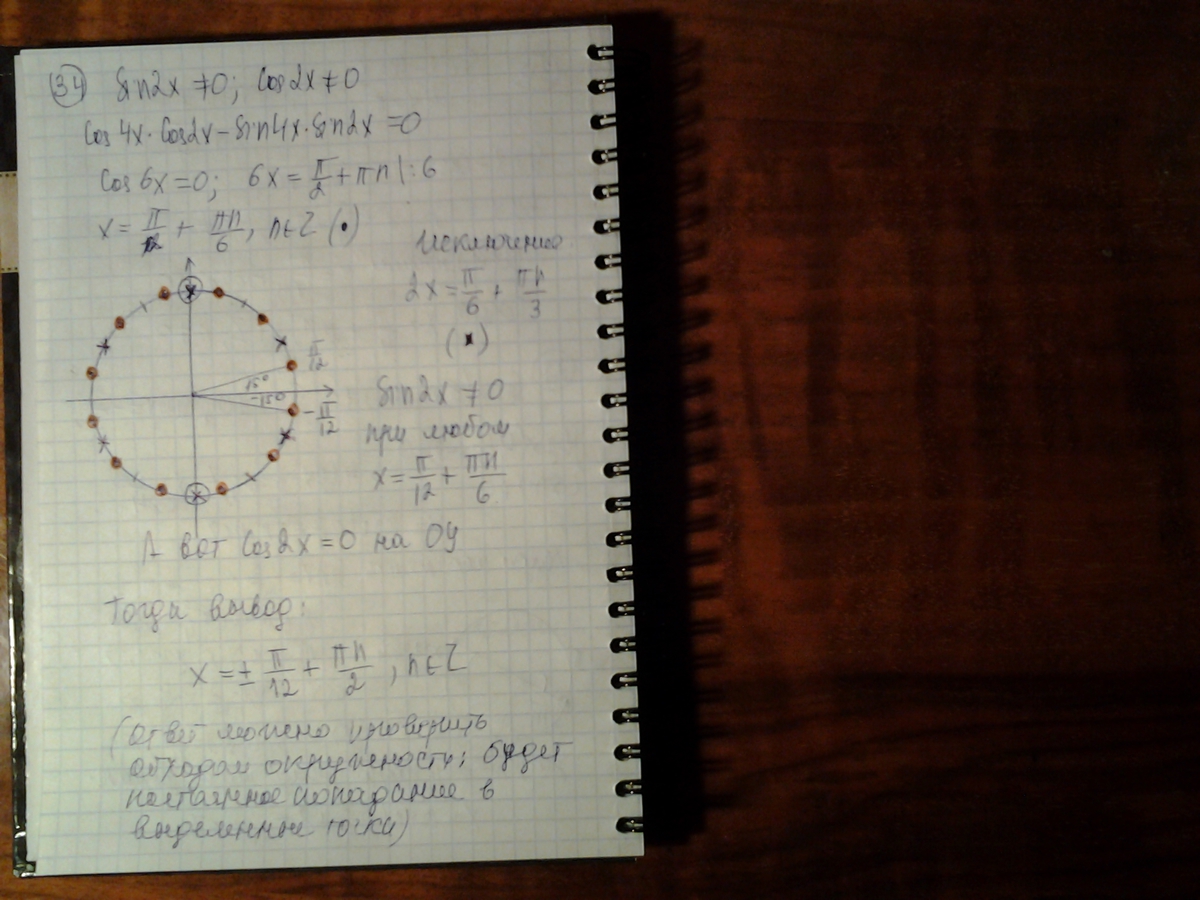 34 Sin2x ≠0; Cos2x≠0
Cos4x·Cos2x-Sin4x·Sin2x=0
Cos6x=0; 6x=π/2+πn|:6
x=π/12+πn/6, n∈Z (•)
Исключение
2x=π/6+πn/3
(×)
π/12
15°
-15°
-π/12
Sin2x≠0
при любом
x=π/12+πn/6
А вот Cos2x=0 на ОУ
Тогда вывод:
x=±π/12+πn/2, n∈Z
(ответ можно проверить
обходом окружности; будет
попадание в
выделенные точки)